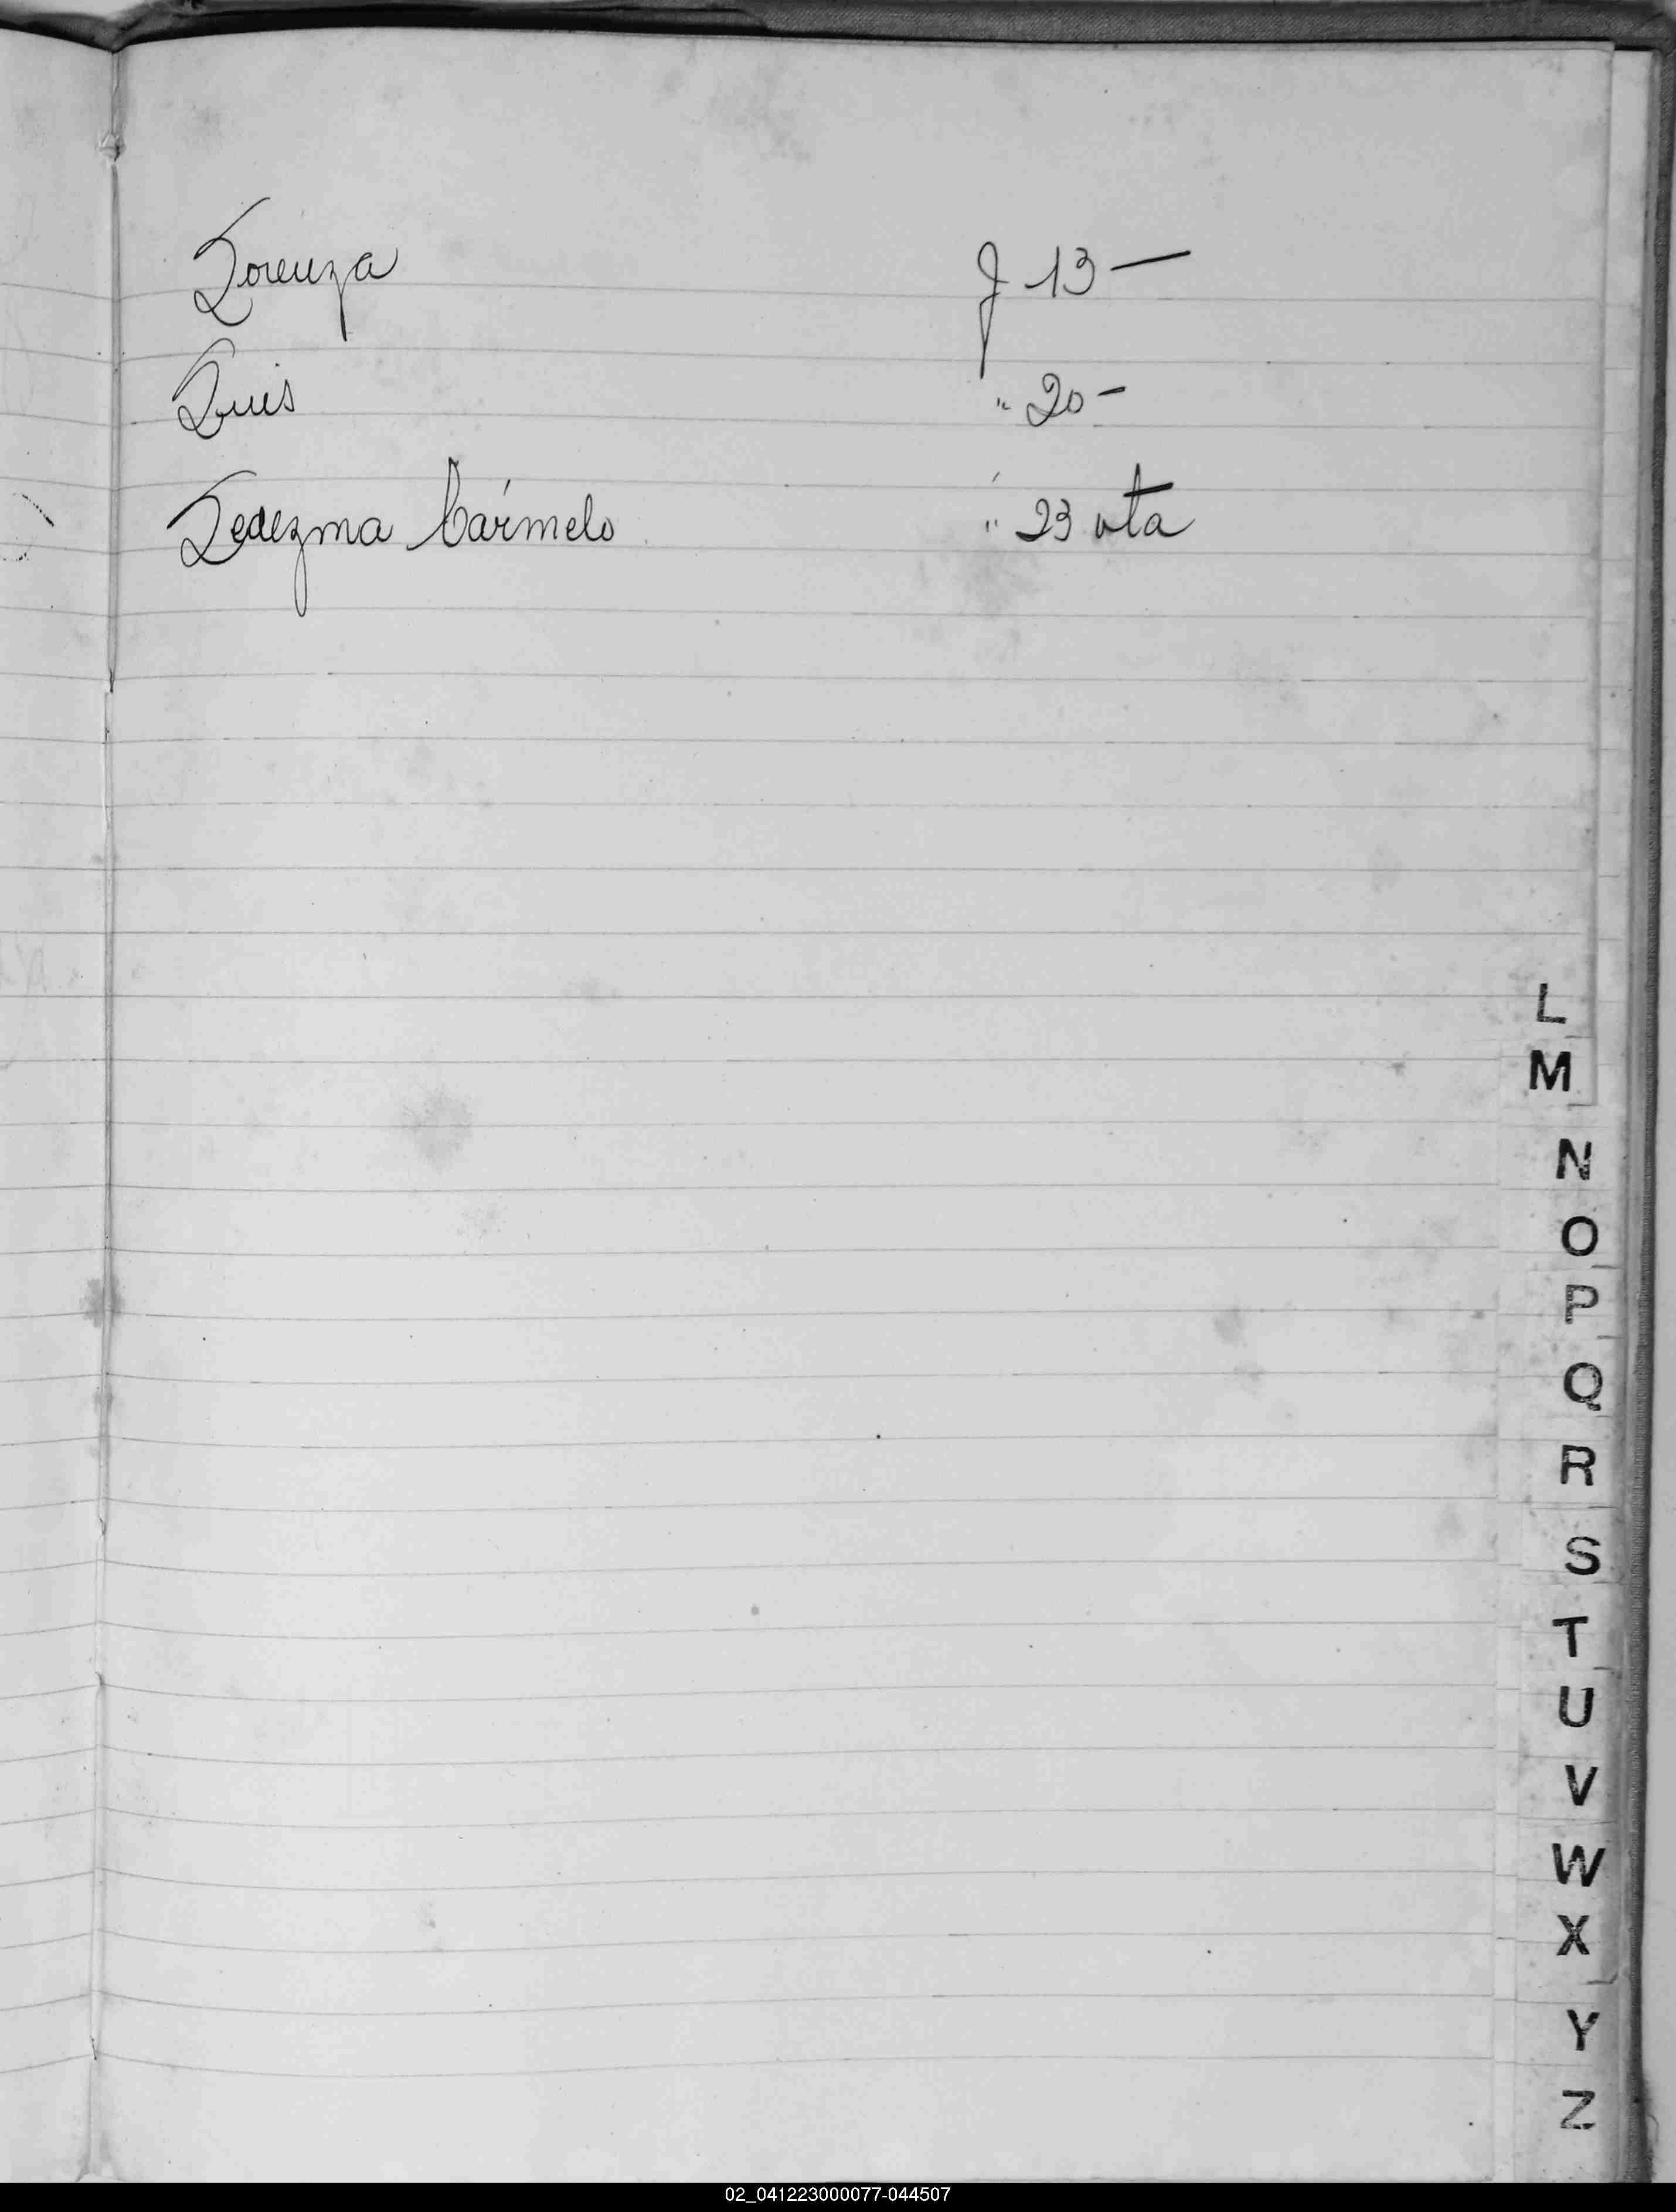 Lorenza f 13 —
Luis " 20 -
Ledezma Cármelo " 23 vta
L
M
N
O
P
Q
R
S
T
U
V
W
X
Y
Z
02_041223000077-044507